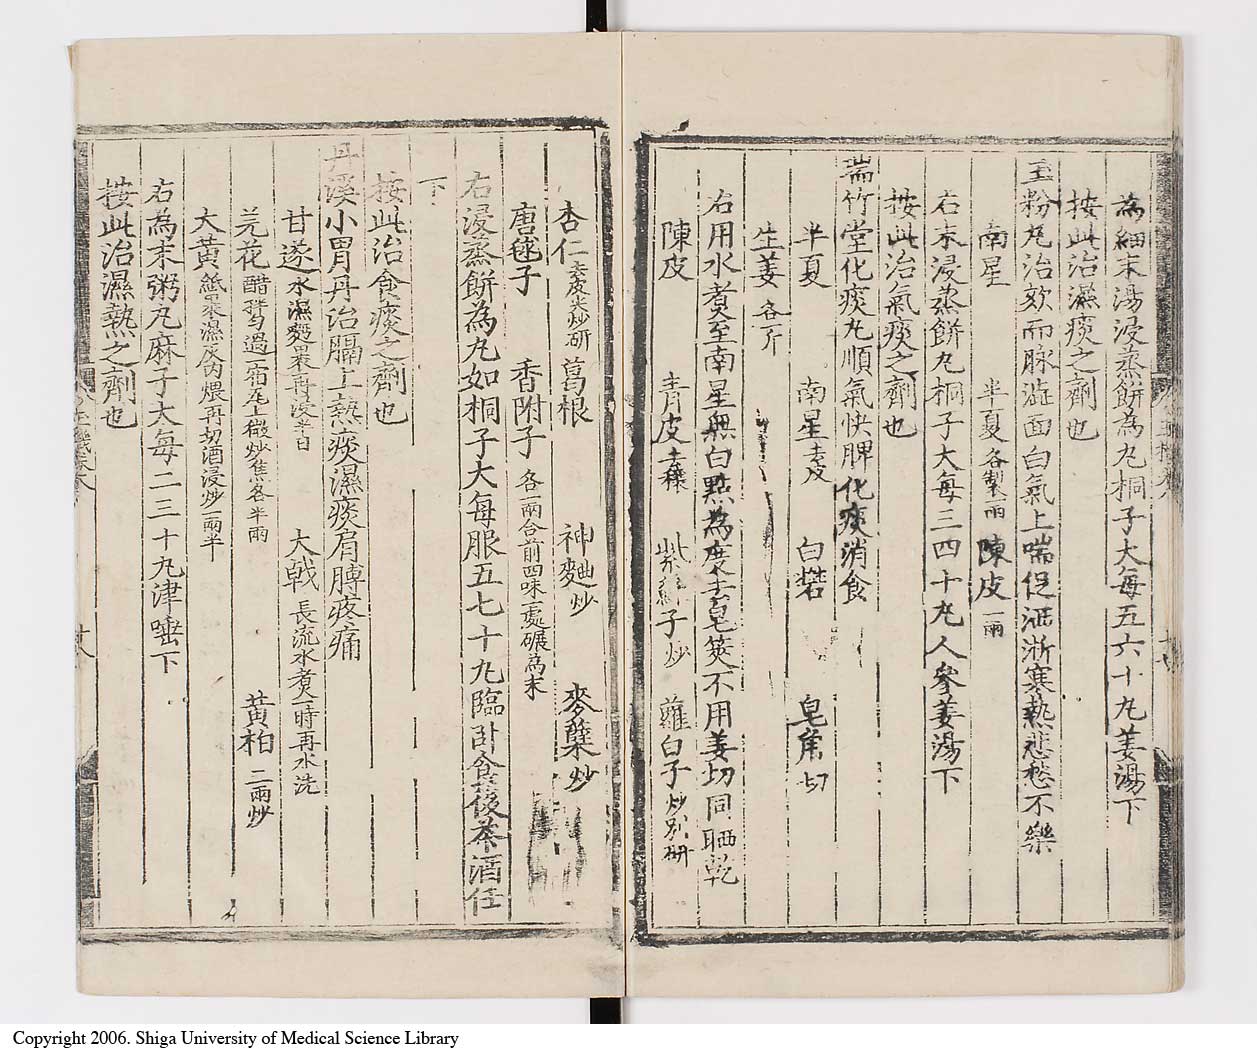 為細末湯浸蒸餅為丸桐子大每五六十丸姜湯下
按此治濕痰之劑也
玉粉丸治欬而脉澁面白氣上喘促洒淅寒熱悲愁不樂
南星 半夏各製一兩 陳皮一兩
右末浸蒸餅丸桐子大每三四十丸人參姜湯下
按此治氣痰之劑也
瑞竹堂化痰丸順氣快脾化痰消食
半夏 南星去皮 白礬 皂角切
生姜各斤
右用水煑至南星無白點為度去皂莢不用姜切同晒乾
陳皮 青皮去穰 紫蘇子炒 蘿白子炒別研
杏仁去皮尖炒研 葛根 神麯炒 麥蘖炒
唐毬子 香附子各一兩合前四味一處碾為末
右浸蒸餅為丸如桐子大每服五七十丸臨卧食後茶酒任
下
按此治食痰之劑也
丹溪小胃丹治膈上熱痰濕痰肩膊疼痛
甘遂水濕麪裹再浸半日 大戟長流水煑一時再水洗
芫花醋拌過一宿瓦上微炒焦各半兩 黃柏二兩炒
大黃紙裹濕灰内煨再切酒浸炒一兩半
右為末粥丸麻子大每二三十丸津嚥下
按此治濕熱之劑也
十八
Copyright 2006. Shiga University of Medical Science Library